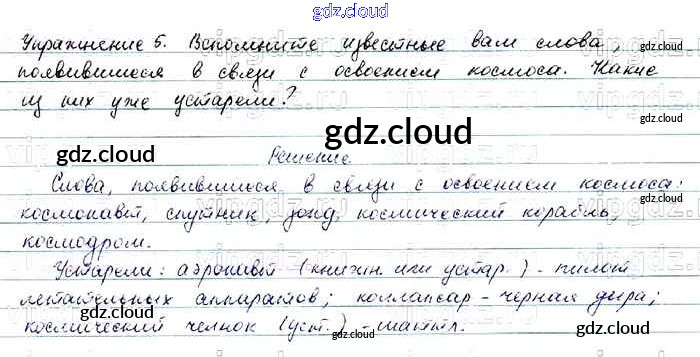 gdz.cloud
Упражнение 5. Вспомните известные вам слова,
gdz.cloud
появившиеся в связи с освоением космоса. Какие
из них уже устарели?
gdz.cloud
gdz.cloud
gdz.cloud
gdz.cloud
Решение
Слова, появившиеся в связи с освоением космоса:
космонавт, спутник, зонд, космический корабль,
gdz.cloud
космодром.
Устарели: аэронавт (книжн. или устар.) - пилот
летательных аппаратов; коллапсар - черная дыра;
gdz.cloud
космический челнок (уст.) - шаттл.
gdz.cloud
gdz.cloud